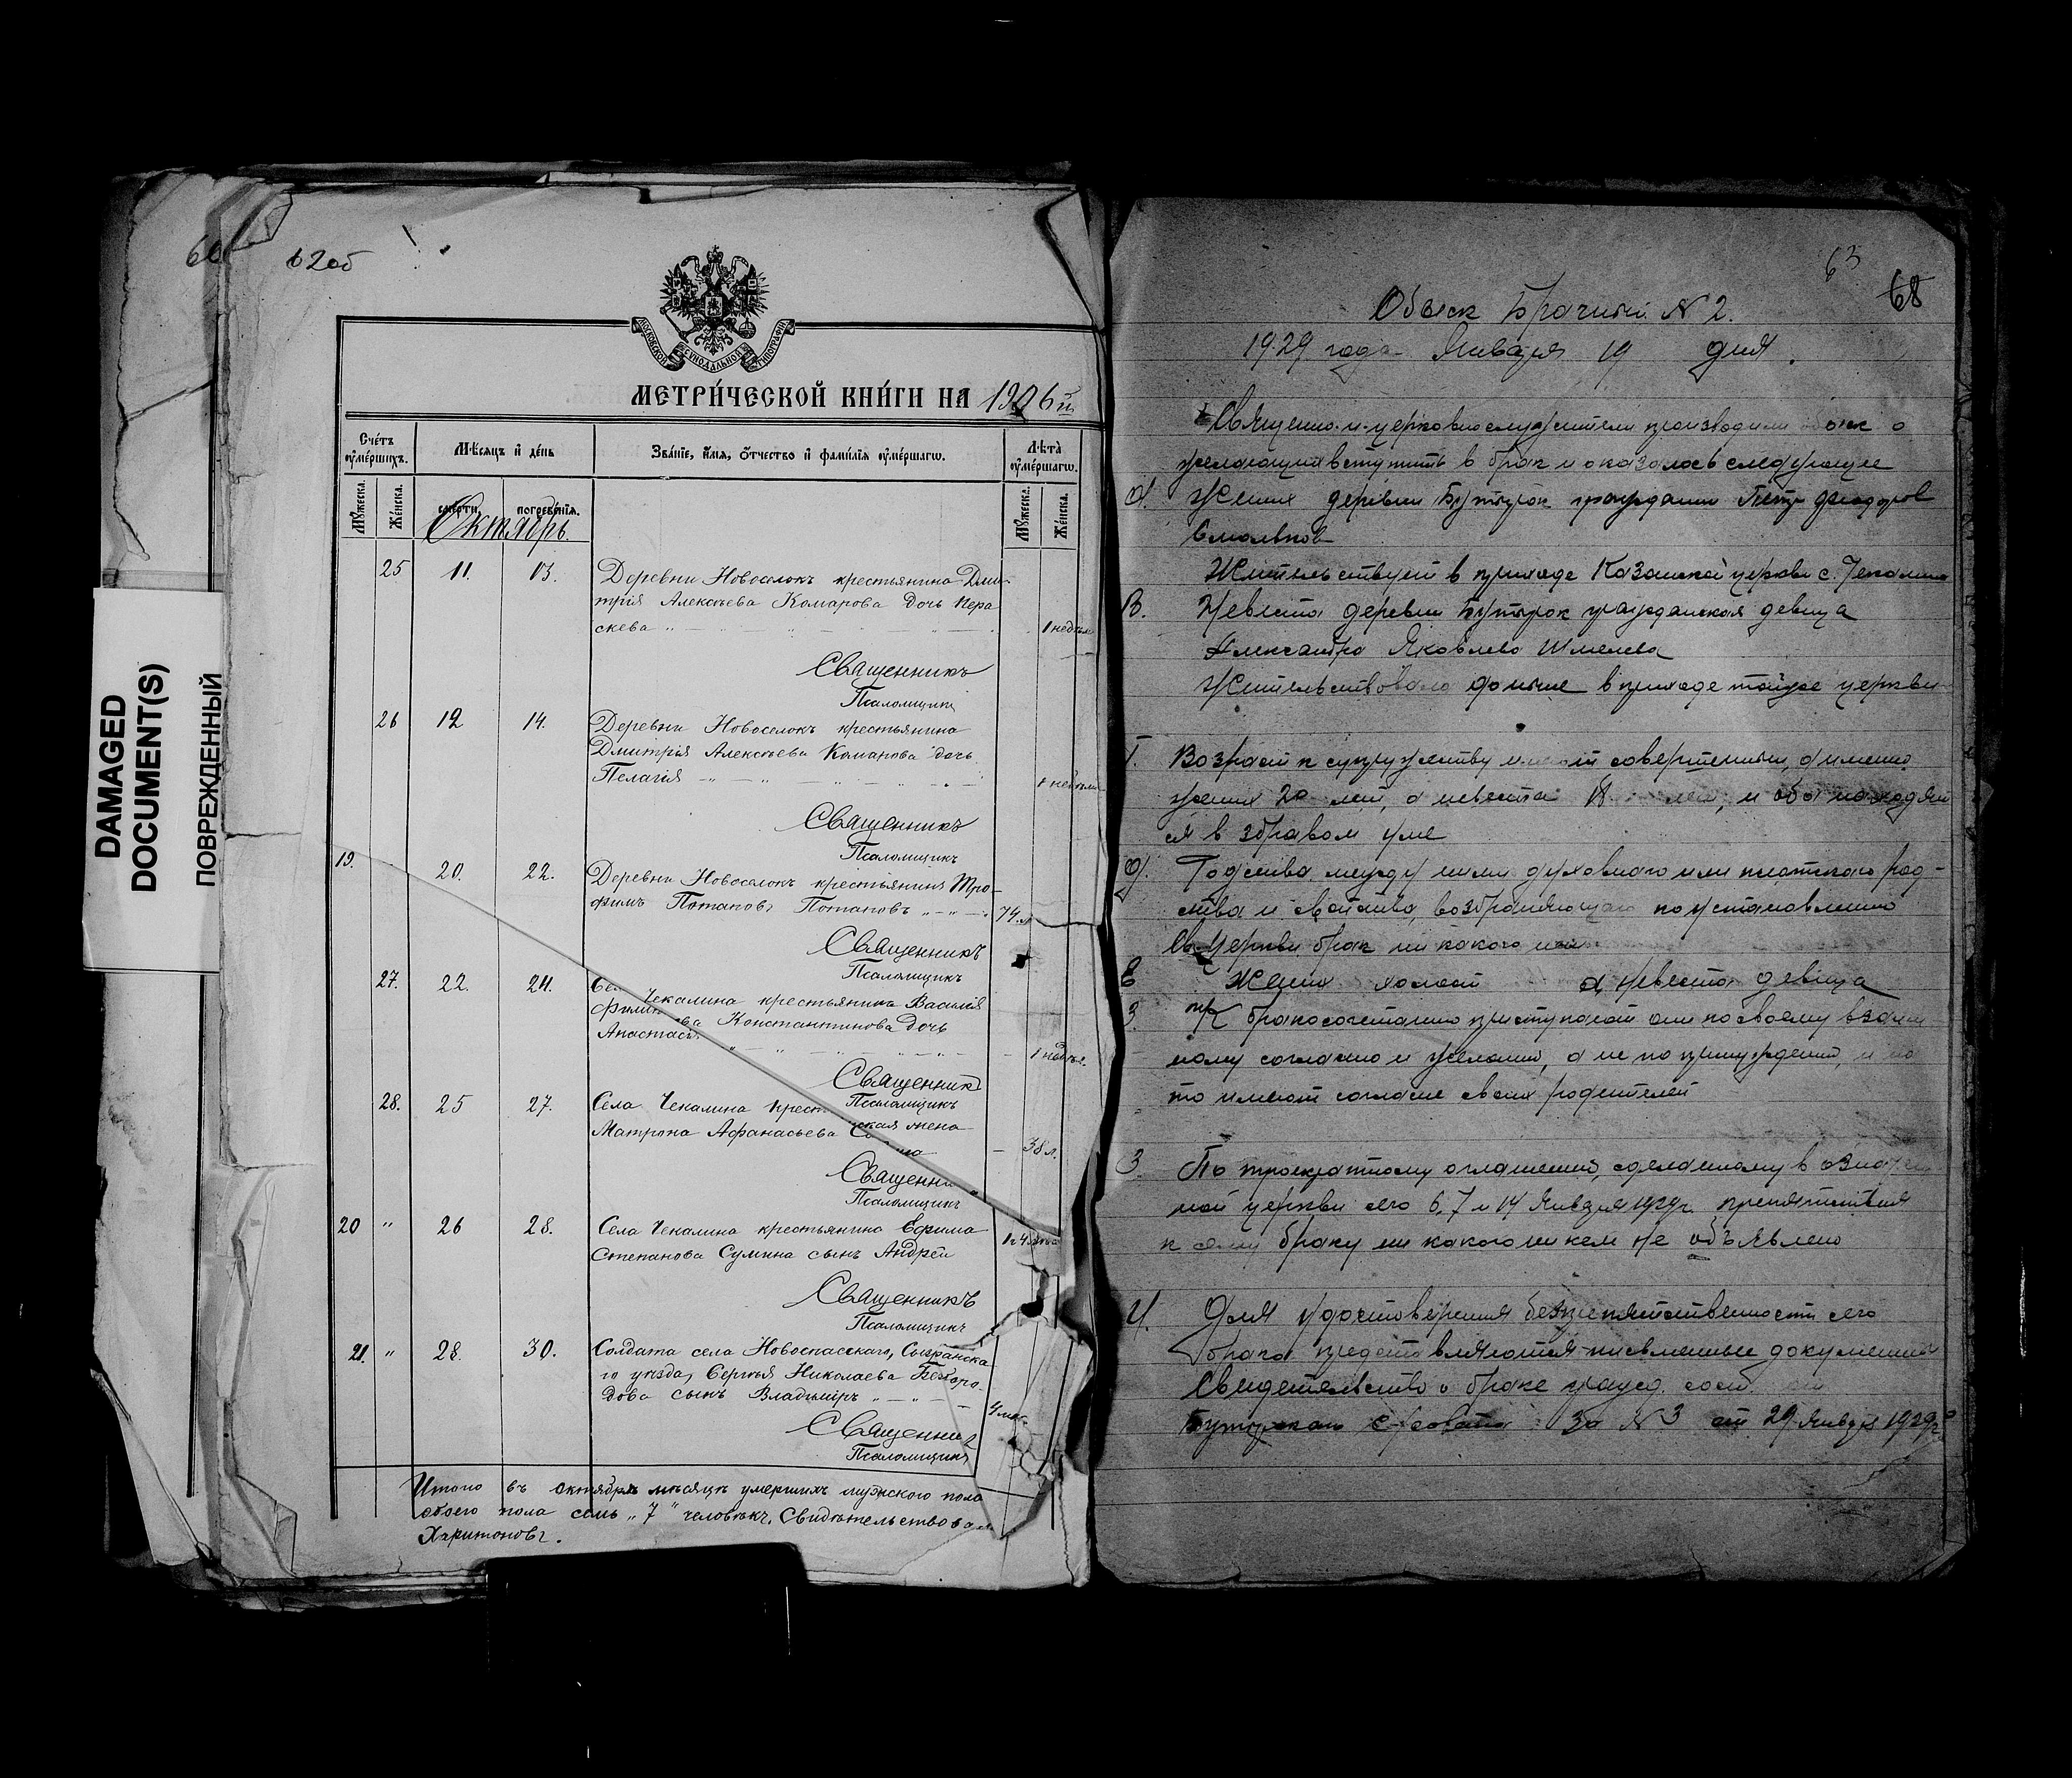 DAMAGED
DOCUMENT(S)
ПОВРЕЖДЕННЫЙ
62об
МОСКОВСКОЙ СѴНОДАЛЬНОЙ ТИПОГРАФІИ
МЕТРИ́ЧЕСКОЙ КНИ́ГИ НА 1906й
Сче́тъ ᲂумѐршихъ.
Мѣ́сяцъ и҆ де́нь
Зва́нїе, и҆́мѧ, ѻ҆́тчество и҆ фами́лїѧ ᲂу҆ме́ршагѡ.
Лѣ́та ᲂу҆ме́ршагѡ.
Мꙋ́жеска. Же́нска.
сме́рти. погребе́нїѧ.
Мꙋ́жеска. Же́нска.
Октябрь.
25 11. 13. Деревни Новоселокъ крестьянина Дми-
трія Алексѣева Комарова дочь Пера
скева 1 недѣл
Священникъ
Псаломщикъ
26 12 14. Деревни Новоселокъ крестьянина
Дмитрія Алексѣева Комарова дочь
Пелагія
Священникъ
Псаломщикъ
19. 20. 22. Деревни Новоселокъ крестьянинъ Тро-
фимъ Потаповъ Потаповъ 74 л
Священникъ
Псаломщикъ
27. 22. 24. Чекалина крестьянина Василія
Константинова дочь
Анастасія 1 недѣл.
Священникъ
Псаломщикъ
28. 25 27. Села Чекалина
Матрона Афанасьева 38 л.
Псаломщикъ
20 " 26 28. Села Чекалина крестьянина Ефима
Степанова Сумина сынъ Андрей
Священникъ
Псаломщикъ
21. " 28. 30. Солдата села Новоспасскаго, Сызранска-
го уѣзда, Сергѣя Николаева
дова сынъ Владиміръ
Священникъ
Псаломщикъ
Итого въ октябрѣ мѣсяцѣ умершихъ мужского пола
обоего пола семь „7" человѣкъ. Свидѣтельствовал
Харитоновъ.
63
68
Обыск Брачный N 2.
1929 года Января 19 дня.
Священно-и-церковнослужители производили обыск о
желающих вступить в брак и оказалось следующее
А. Жених деревни Бутырок гражданин Петр Феодоров
Жительствует в приходе Казанской церкви с. Чекалина
В. Невеста деревни Бутырок гражданская девица
Александра Яковлева Шмелева
Жительствовала доныне в приходе тойже церкви
Г. Возраст к супружеству имеют совершенный, а именно
жених 20 лет, а невеста 18 лет, и оба находят
ся в здравом уме
Д. Родства между ними духовного или плотского род-
ства и свойства, возбраняющаго по установлению
св. Церкви брак ни какого нет
Е Жених холост а невеста девица
К бракосочетанию приступают они по своему взаим
ному согласию и желанию, а не по принуждению, и на
то имеют согласие своих родителей
З По троекратному оглашению, сделанному в означен
ной церкви сего 6, 7 и 14 Января 1929г. препятствия
к сему браку ни какого ни кем не объявлено
И. Для удостоверения безпрепятственности сего
брака представляются письменные документы
Свидетельство о браке гражд. сост.
за N 3 от 29 Января 1929г.